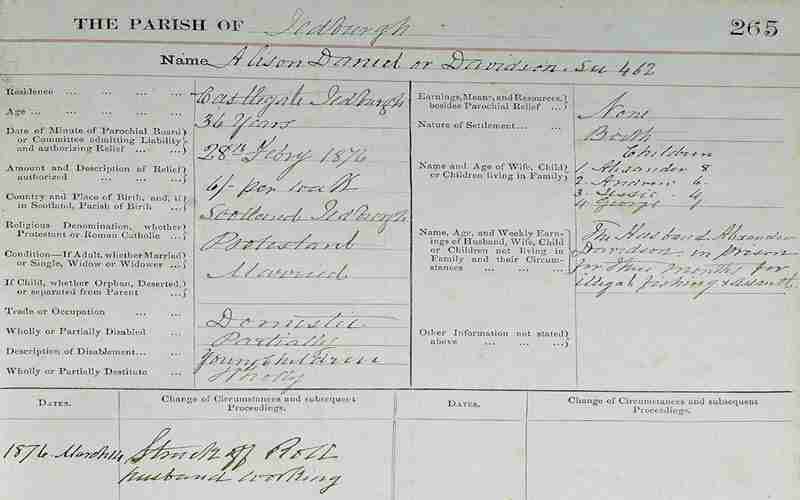 THE PARISH OF Jedburgh
265
Name Alison Daniel or Davidson. See 462
Residence ... ... ... ... ... Castlegate Jedburgh
Age ... ... ... ... ... ... 36 Years
Date of Minute of Parochial Board
or Committee admitting Liability
and authorizing Relief ... ... 28th Feby 1876
Amount and Description of Relief
authorized ... ... ... ... 6/- per week
Country and Place of Birth, and, if
in Scotland, Parish of Birth ... Scotland Jedburgh
Religious Denomination, whether
Protestant or Roman Catholic ... Protestant
Condition—If Adult, whether Married
or Single, Widow or Widower ... Married
If Child, whether Orphan, Deserted,
or separated from Parent ...
Trade or Occupation ... ... Domestic
Wholly or Partially Disabled ... Partially
Description of Disablement... ... Young Children
Wholly or Partially Destitute ... Wholly
Earnings, Means, and Resources,
besides Parochial Relief ... None
Nature of Settlement... ... Birth
Name and Age of Wife, Child
or Children living in Family
Children
1. Alexander 8
2. Andrew 6
3. Jessie 4
4. George
Name, Age, and Weekly Earn-
ings of Husband, Wife, Child
or Children not living in
Family and their Circum-
stances ... ... ...
The Husband Alexander
Davidson in prison
for three months for
illegal fishing & assault
Other Information not stated
above ... ... ... ...
DATES.
Change of Circumstances and subsequent
Proceedings.
DATES.
Change of Circumstances and subsequent
Proceedings.
1876 March Struck off Roll
husband working